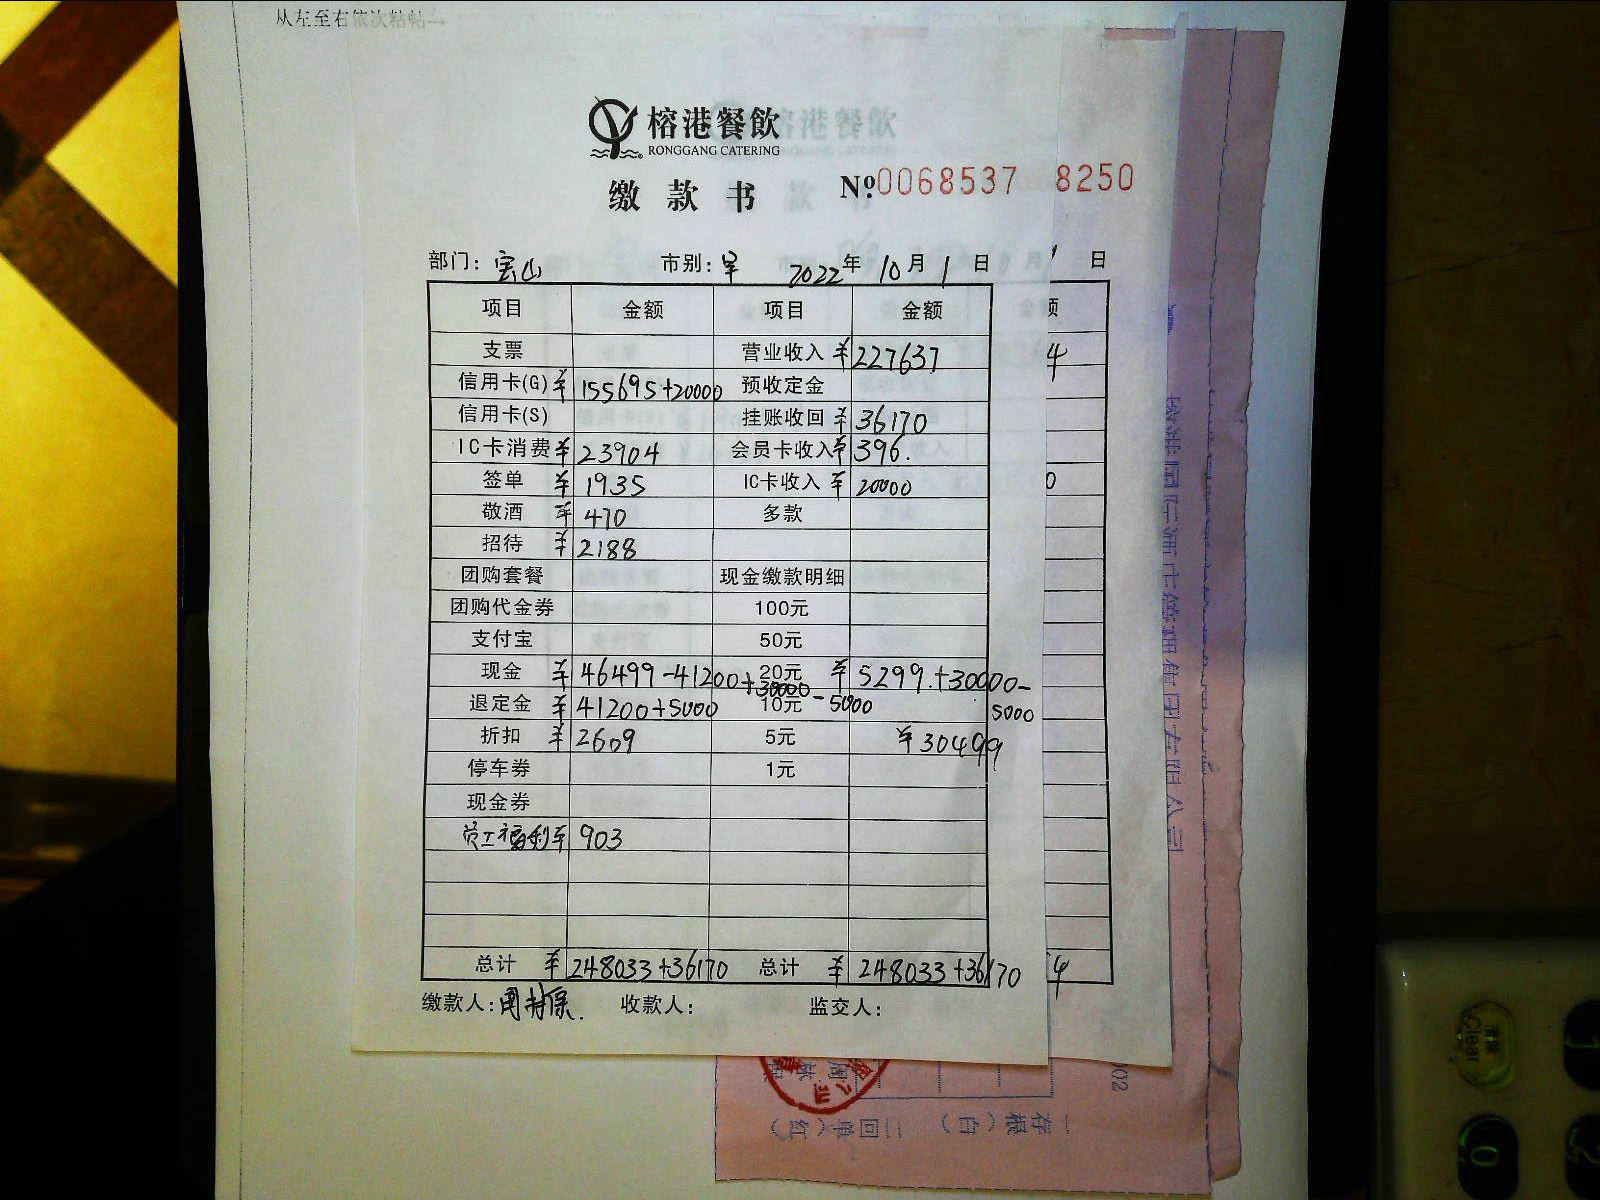 从左至右依次粘帖→
榕港餐飲
RONGGANG CATERING
缴款书 №0068537 8250
部门: 宝山 市别: 2022年10月1日 日
项目 金额 项目 金额
支票 营业收入 ¥227637 4
信用卡(G) ¥155695+20000 预收定金
信用卡(S) 挂账收回 ¥36170
IC卡消费 ¥23904 会员卡收入 ¥396.
签单 ¥1935 IC卡收入 ¥20000 0
敬酒 ¥470 多款
招待 ¥2188
团购套餐 现金缴款明细
团购代金券 100元
支付宝 50元
现金 ¥46499-41200+30000-5000 20元 ¥5299.+30000-5000
退定金 ¥41200+5000 10元
折扣 ¥2609 5元 ¥30499
停车券 1元
现金券
员工福利 ¥903
总计 ¥248033+36170 总计 ¥248033+36170 4
缴款人: 收款人: 监交人:
002
一存根(白) 三回单(红)
Clear